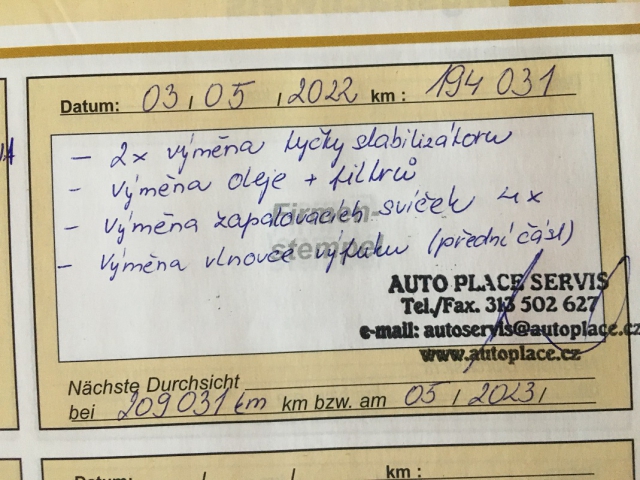 Datum: 03, 05, 2022 km: 194 031
- 2x výměna tyčky stabilizátoru
- výměna oleje + filtrů
- výměna zapalovacích svíček 4x
- výměna vlnovce výfuku (přední část)
Firmen-
stempel
AUTO PLACE SERVIS
Tel./Fax. 313 502 627
e-mail: autoservis@autoplace.cz
www.autoplace.cz
Nächste Durchsicht
bei 209 031 km km bzw. am 05, 2023,
Datum: km :